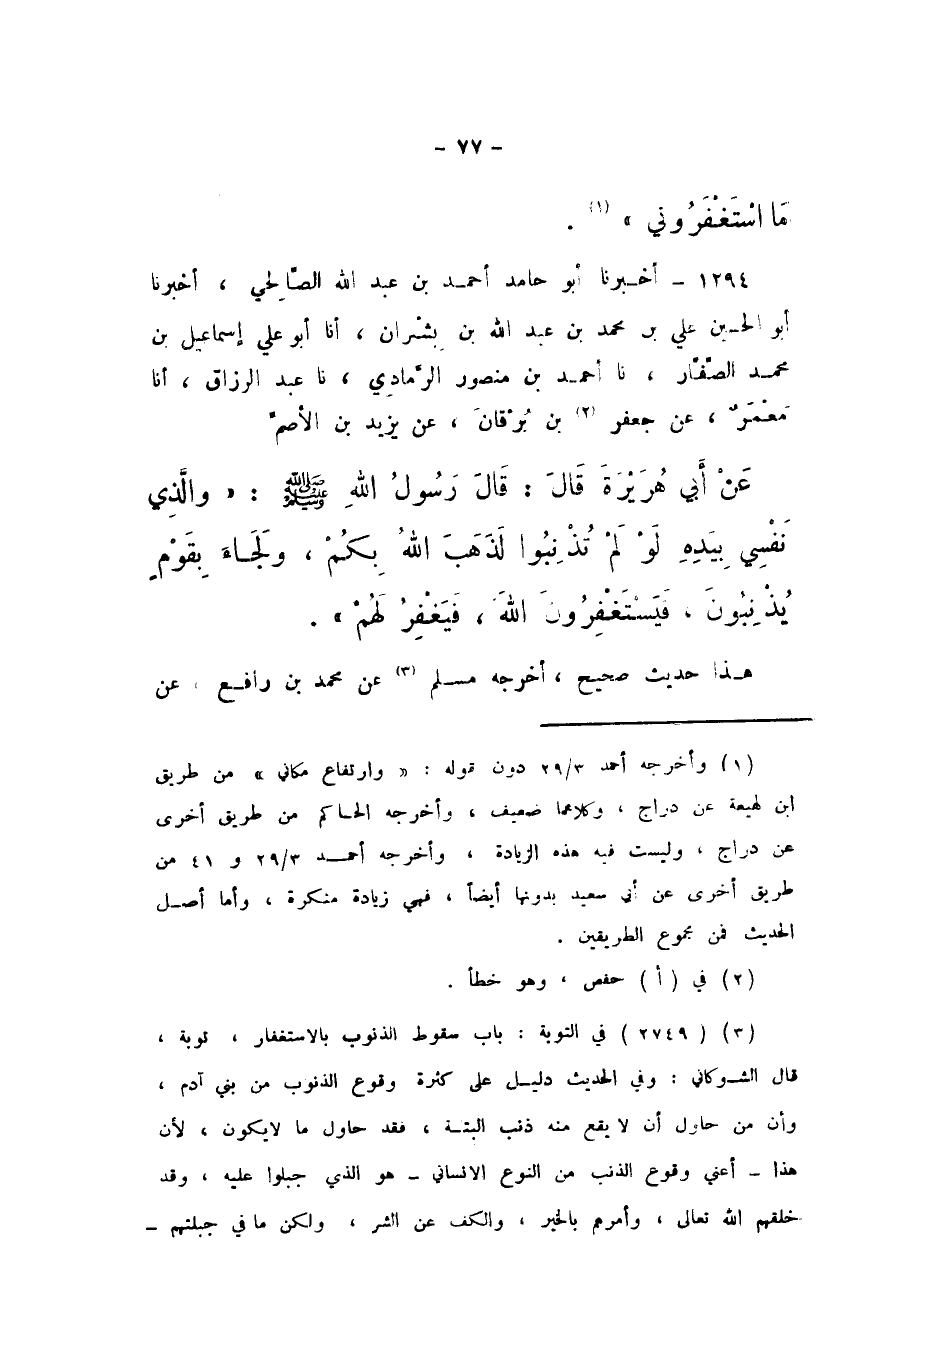 - ٧٧ -
مَا اسْتَغْفَرُوني » (١) .
١٢٩٤ - أخـبرنا أبو حامد أحمـد بن عبد الله الصَّالحي ، أخبرنا
أبو الحسين علي بن محمد بن عبد الله بن بِشْران ، أنا أبو علي إسماعيل بن
محمـد الصَّفَّار ، نا أحمـد بن منصور الرَّمادي ، نا عبد الرزاق ، أنا
مَعْمَرٌ ، عن جعفر (٢) بن بُرْقانَ ، عن يزيد بن الأصمِّ
عَنْ أَبي هُرَيْرَةَ قَالَ : قَالَ رَسُولُ اللهِ ﷺ : « والَّذِي
نَفْسِي بِيَدِهِ لَوْ لَمْ تُذْنِبُوا لَذَهَبَ اللهُ بِكُمْ ، ولَجَـاءَ بِقَوْمٍ
يُذْنِبُونَ ، فَيَسْتَغْفِرُونَ اللهَ ، فَيَغْفِرُ لَهُمْ » .
هـذا حديث صحيح ، أخرجه مسـلم (٣) عن محمد بن رافـع ، عن
(١) وأخرجه أحمد ٢٩/٣ دون قوله : « وارتفاع مكاني » من طريق
ابن لهيعة عن دراج ، وكلاهما ضعيف ، وأخرجه الحـاكم من طريق أخرى
عن دراج ، وليست فيه هذه الزيادة ، وأخرجه أحمـــد ٢٩/٣ و ٤١ من
طريق أخرى عن أبي سعيد بدونها أيضاً ، فهي زيادة منكرة ، وأما أصـل
الحديث فمن مجموع الطريقين .
(٢) في ( أ ) حفص ، وهو خطأ .
(٣) ( ٢٧٤٩ ) في التوبة : باب سقوط الذنوب بالاستغفار ، توبة ،
قال الشـوكاني : وفي الحديث دليـل على كثرة وقوع الذنوب من بني آدم ،
وأن من حاول أن لا يقع منه ذنب البتـة ، فقد حاول ما لايكون ، لأن
هذا - أعني وقوع الذنب من النوع الانساني - هو الذي جبلوا عليه ، وقد
خلقهم الله تعالى ، وأمرهم بالخير ، والكف عن الشر ، ولكن ما في جبلتهم -